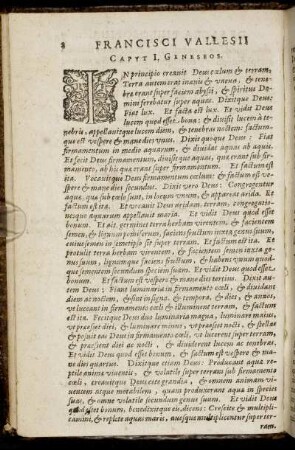 8 FRANCISCI VALLESII
CAPVT I, GENESEOS.
IN principio creavit Deus cælum & terram,
Terra autem erat inanis & vacua, & tene-
bræ erant super faciem abyssi, & spiritus Do
mini ferebatur super aquas. Dixitque Deus:
Fiat lux. Et facta est lux. Et vidit Deus
lucem quod esset bona: & divisit lucem à te-
nebris, appellavitque lucem diem, & tenebras noctem: factum-
que est vespere & mane dies unus. Dixit quoque Deus: Fiat
firmamentum in medio aquarum, & dividat aquas ab aquis.
Et fecit Deus firmamentum, divisitque aquas, quæ erant sub fir-
mamento, ab his quæ erant super firmamentum. Et factum est
ita. Vocavitque Deus firmamentum cælum: & factum est ve-
spere & mane dies secundus. Dixit vero Deus: Congregentur
aquæ, quæ sub cælo sunt, in locum unum, & appareat arida. Et
factum est ita. Et vocavit Deus aridam, terram, congregatio-
nesque aquarum appellavit maria. Et vidit Deus quod esset
bonum. Et ait, germinet terra herbam virentem, & facientem
semen, & lignum pomiferum, faciens fructum juxta genus suum,
cujus semen in semetipso sit super terram. Et factum est ita. Et
protulit terra herbam virentem, & facientem semen juxta ge-
nus suum, lignumque faciens fructum, & habens unumquod-
que sementem secundum speciem suam. Et vidit Deus quod esset
bonum. Et factum est vespere & mane dies tertius. Dixit au-
tem Deus: Fiant luminaria in firmamento cæli, & dividant
diem ac noctem, & sint in signa, & tempora, & dies, & annos,
ut luceant in firmamento cæli & illuminent terram, & factum
est ita. Fecitque Deus duo luminaria magna, luminare majus,
ut præesset diei, & luminare minus, ut præesset nocti, & stellas
& posuit eas Deus in firmamento cæli, ut lucerent super terram,
& præessent diei ac nocti, & dividerent lucem ac tenebras.
Et vidit Deus quod esset bonum, & factum est vespere & ma-
ne dies quartus. Dixit etiam Deus: Producant aquæ re-
ptile animæ viventis, & volatile super terram sub firmamento
cæli, creavitque Deus cete grandia, & omnem animam vi-
ventem atque motabilem, quam produxerant aquæ in species
suas, & omne volatile secundum genus suum. Et vidit Deus
quod esset bonum, benedixitque eis dicens: Crescite & multipli-
camini, & replete aquas maris, avesque multiplicentur super ter-
ram.